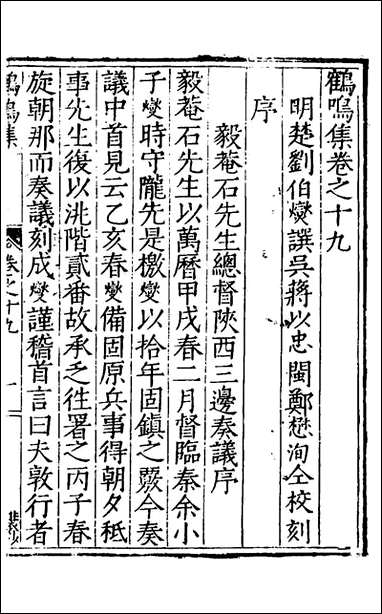 鶴鳴集卷之十九
明楚劉伯燮譔吳蔣以忠閩鄭懋洵仝校刻
序
毅菴石先生總督陝西三邊奏議序
毅菴石先生以萬曆甲戌春二月督臨秦余小
子燮時守隴先是檄燮以拾年固鎮之蹶今奏
議中首見云乙亥春燮備固原兵事得朝夕秪
事先生復以洮階貳番故承乏徃署之丙子春
旋朝那而奏議刻成燮謹稽首言曰夫敦行者
鶴鳴集
卷之十九
一